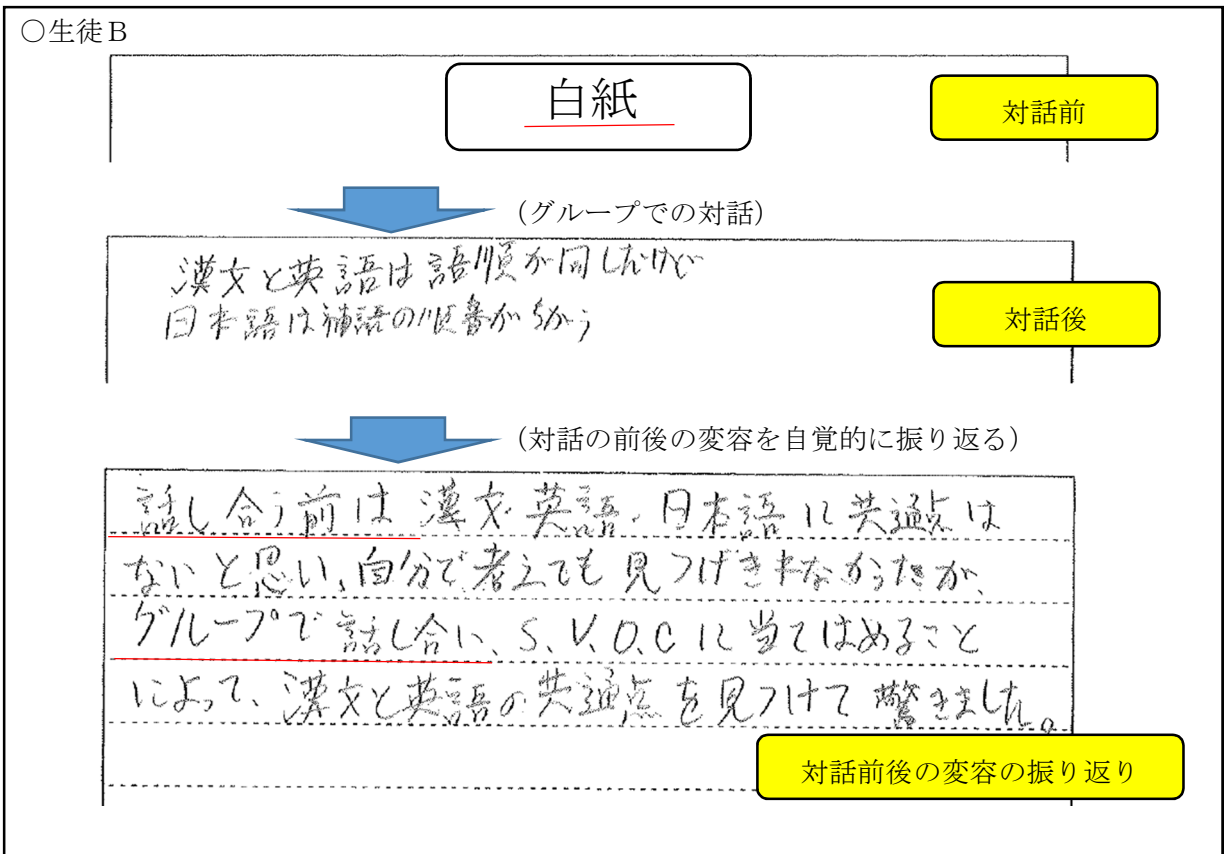 ○生徒B
白紙
対話前
(グループでの対話)
漢文と英語は語順が同じだけど
日本語は補語の順番がちがう
対話後
(対話の前後の変容を自覚的に振り返る)
話し合う前は漢文、英語、日本語に共通点は
ないと思い、自分で考えても見つけきれなかったが、
グループで話し合い、S、V、O、Cに当てはめること
によって、漢文と英語の共通点を見つけて驚きました。
対話前後の変容の振り返り